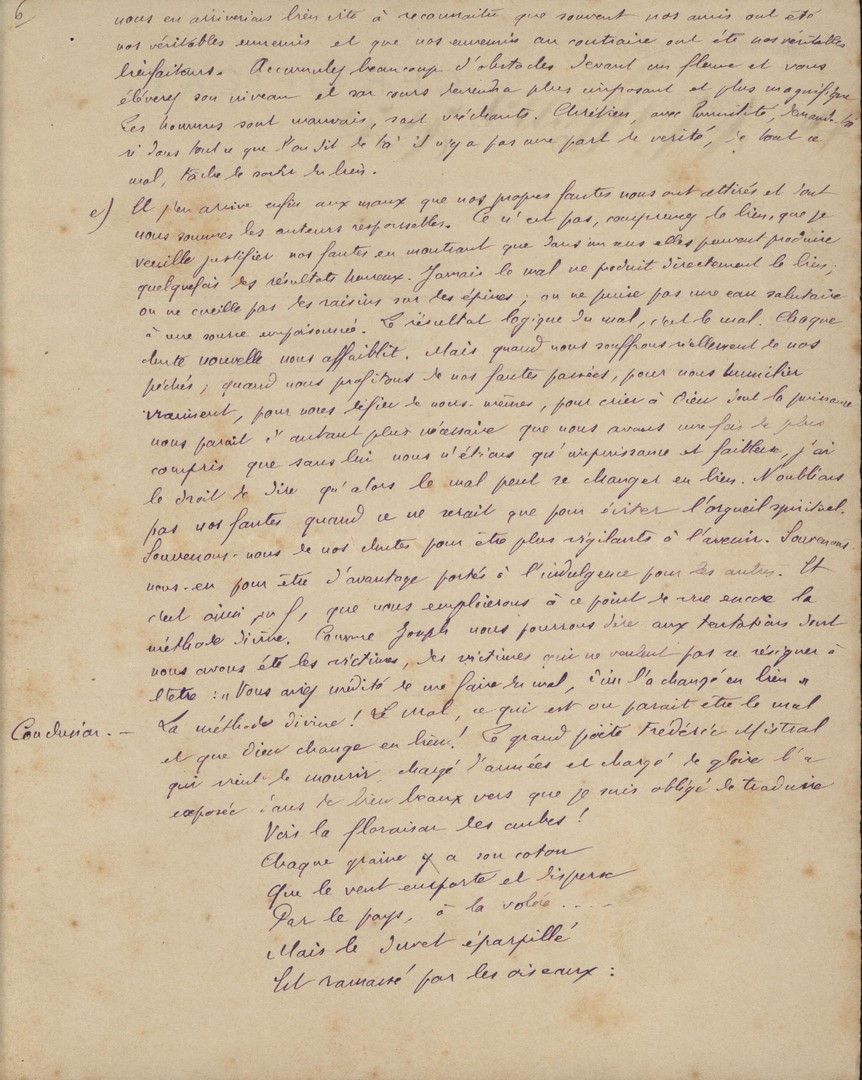 6
nous en arriverions bien vite à reconnaître que souvent nos amis ont été
nos véritables ennemis et que nos ennemis au contraire ont été nos véritables
bienfaiteurs. Accumulez beaucoup d'obstacles devant un fleuve et vous
élèverez son niveau et son cours deviendra plus imposant et plus magnifique
Les hommes sont mauvais, sont méchants. Chrétien, avec humilité, demande-toi
si dans tout ce que l'on dit de toi il n'y a pas une part de vérité, de tout ce
mal, tâche de sortir du bien.
e) Il j'en arrive enfin aux maux que nos propres fautes nous ont attirés et dont
nous sommes les auteurs responsables. Ce n'est pas, comprenez le bien, que je
veuille justifier nos fautes en montrant que dans un sens elles peuvent produire
quelquefois des résultats heureux. Jamais le mal ne produit directement le bien,
on ne cueille pas des raisins sur des épines ; on ne puise pas une eau salutaire
à une source empoisonnée. Le résultat logique du mal, c'est le mal. Chaque
chute nouvelle nous affaiblit. Mais quand nous souffrons réellement de nos
péchés ; quand nous profitons de nos fautes passées, pour nous humilier
vraiment, pour nous défier de nous-mêmes, pour crier à Dieu dont la puissance
nous paraît d'autant plus nécessaire que nous avons une fois de plus
compris que sans lui nous n'étions qu'impuissance et faiblesse, j'ai
le droit de dire qu'alors le mal peut se changer en bien. N'oublions
pas nos fautes quand ce ne serait que pour éviter l'orgueil spirituel.
Souvenons-nous de nos chutes pour être plus vigilants à l'avenir. Souvenons-
nous-en pour être d'avantage portés à l'indulgence pour les autres. Et
c'est ainsi, que nous emploierons à ce point de vue encore la
méthode divine. Comme Joseph nous pourrons dire aux tentations dont
nous avons été les victimes, des victimes qui ne veulent pas se résigner à
l'être : "Vous aviez médité de me faire du mal, Dieu l'a changé en bien"
Conclusion. - La méthode divine ! Le mal, ce qui est ou paraît être le mal
et que Dieu change en bien ! Le grand poëte Frédéric Mistral
qui vient de mourir, chargé d'années et chargé de gloire l'a
exposée dans de bien beaux vers que je suis obligé de traduire
Vois la floraison des aubes !
Chaque graine y a son coton
Que le vent emporte et disperse
Par le pays, à la volée ....
Mais le duvet éparpillé
Est ramassé par les oiseaux :